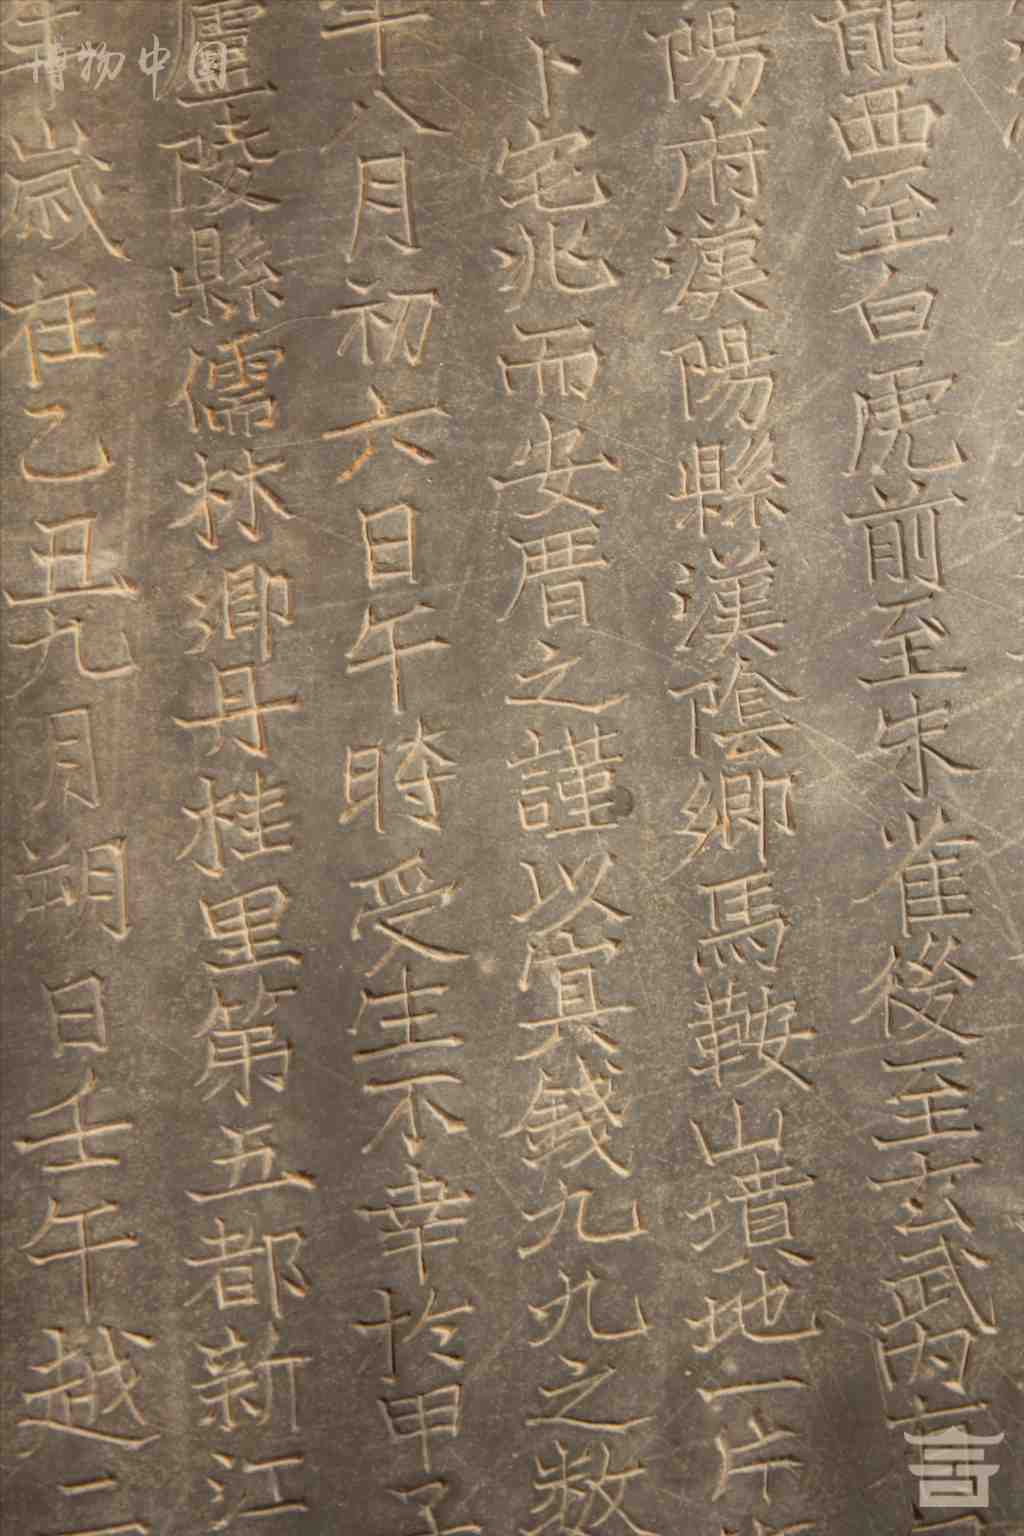 博物中国
年歲在乙丑九月朔日壬午越二
廬陵縣儒林鄉丹桂里第五都新江
十八月初六日午時受生不幸於甲子
卜宅兆而安厝之謹以冥錢九九之數
陽府漢陽縣漢陰鄉馬鞍山墳地一片
龍西至白虎前至朱雀後至玄武内方